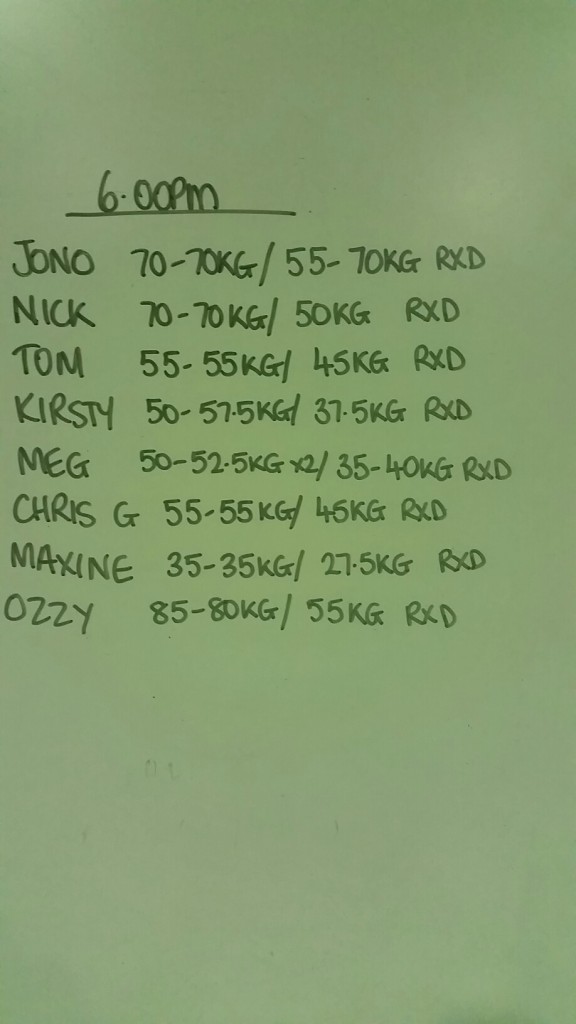 6.00PM
JONO 70-70KG/ 55-70KG RXD
NICK 70-70KG/ 50KG RXD
TOM 55-55KG/ 45KG RXD
KIRSTY 50-57.5KG/ 37.5KG RXD
MEG 50-52.5KG x2/ 35-40KG RXD
CHRIS G 55-55KG/ 45KG RXD
MAXINE 35-35KG/ 27.5KG RXD
OZZY 85-80KG/ 55KG RXD